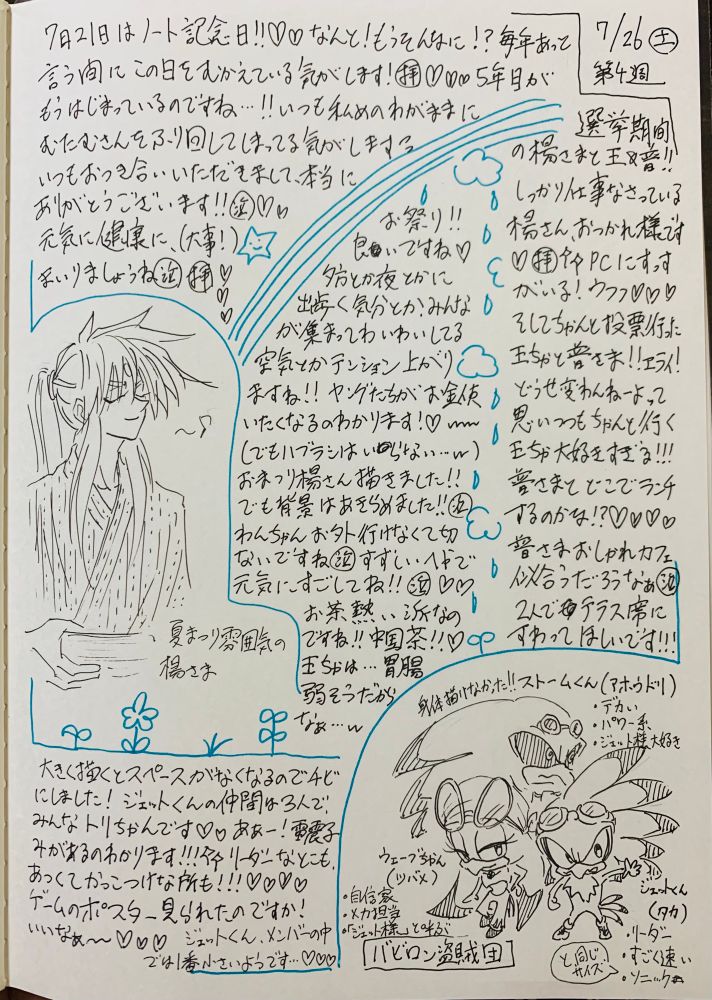 7/26(土)
第4週
7月21日はノート記念日!!♡♡なんと!もうそんなに!?毎年あって
言う間にこの日をむかえている気がします!(拝)♡♡♡5年目が
もうはじまっているのですね…!!いつも私めのわがままに
むたむさんをふり回してしまってる気がします
いつもおつき合いいただきまして、本当に
ありがとうございます!!(泣)♡♡
元気に健康に、(大事!)
まいりましょうね(泣)(拝)♡♡♡
選挙期間
の楊さまと王&普!!
しっかり仕事なさっている
楊さん、おつかれ様です
♡(拝) PCにすっす
がいる!ウフフ♡♡♡
そしてちゃんと投票行った
王ちゃと普さま!!エライ!
どうせ変わんねーよって
思いつつもちゃんと行く
王ちゃ大好きすぎる!!!
普さまと どこでランチ
するのかな!?♡♡♡♡
普さまおしゃれカフェ
似合うだろうなぁ(泣)
2人でテラス席に
すわってほしいです!!!
お祭り!!
良いですね♡
夕方とか夜とかに
出歩く気分とかみんな
が集まってわいわいしてる
空気とかテンション上がり
ますね!!ヤングたちがお金使
いたくなるのわかります!♡
(でもハブラシはいらない…w)
おまつり楊さん描きました!!
でも背景はあきらめました!!(泣)
わんちゃんお外行けなくて切
ないですね(泣)すずしいへやで
元気にすごしてね!!(泣)♡♡
お茶熱い派なの
ですね!!中国茶!!♡
王ちゃは…胃腸
弱そうだから
なぁ…w
~♪
夏まつり雰囲気の
楊さま
大きく描くとスペースがなくなるのでチビ
にしました!ジェットくんの仲間は3人で、
みんなトリちゃんです♡♡あぁー!雷震子
みがあるのわかります!!! リーダーなとこも、
あつくてかっこつけな所も!!!♡♡♡♡
ゲームのポスター見られたのですか!
いいなぁ〜♡♡♡
ジェットくん、メンバーの中
では1番小さいようです…♡♡♡
身体描けなかった!!
ストームくん(アホウドリ)
・デカい
・パワー系
・ジェット様大好き
ウェーブちゃん
(ツバメ)
・自信家
・メカ担当
・「ジェット様」と呼ぶ
バビロン盗賊団
ジェットくん
(タカ)
・リーダー
・すごく速い
・ソニック
と、同じ
サイズ